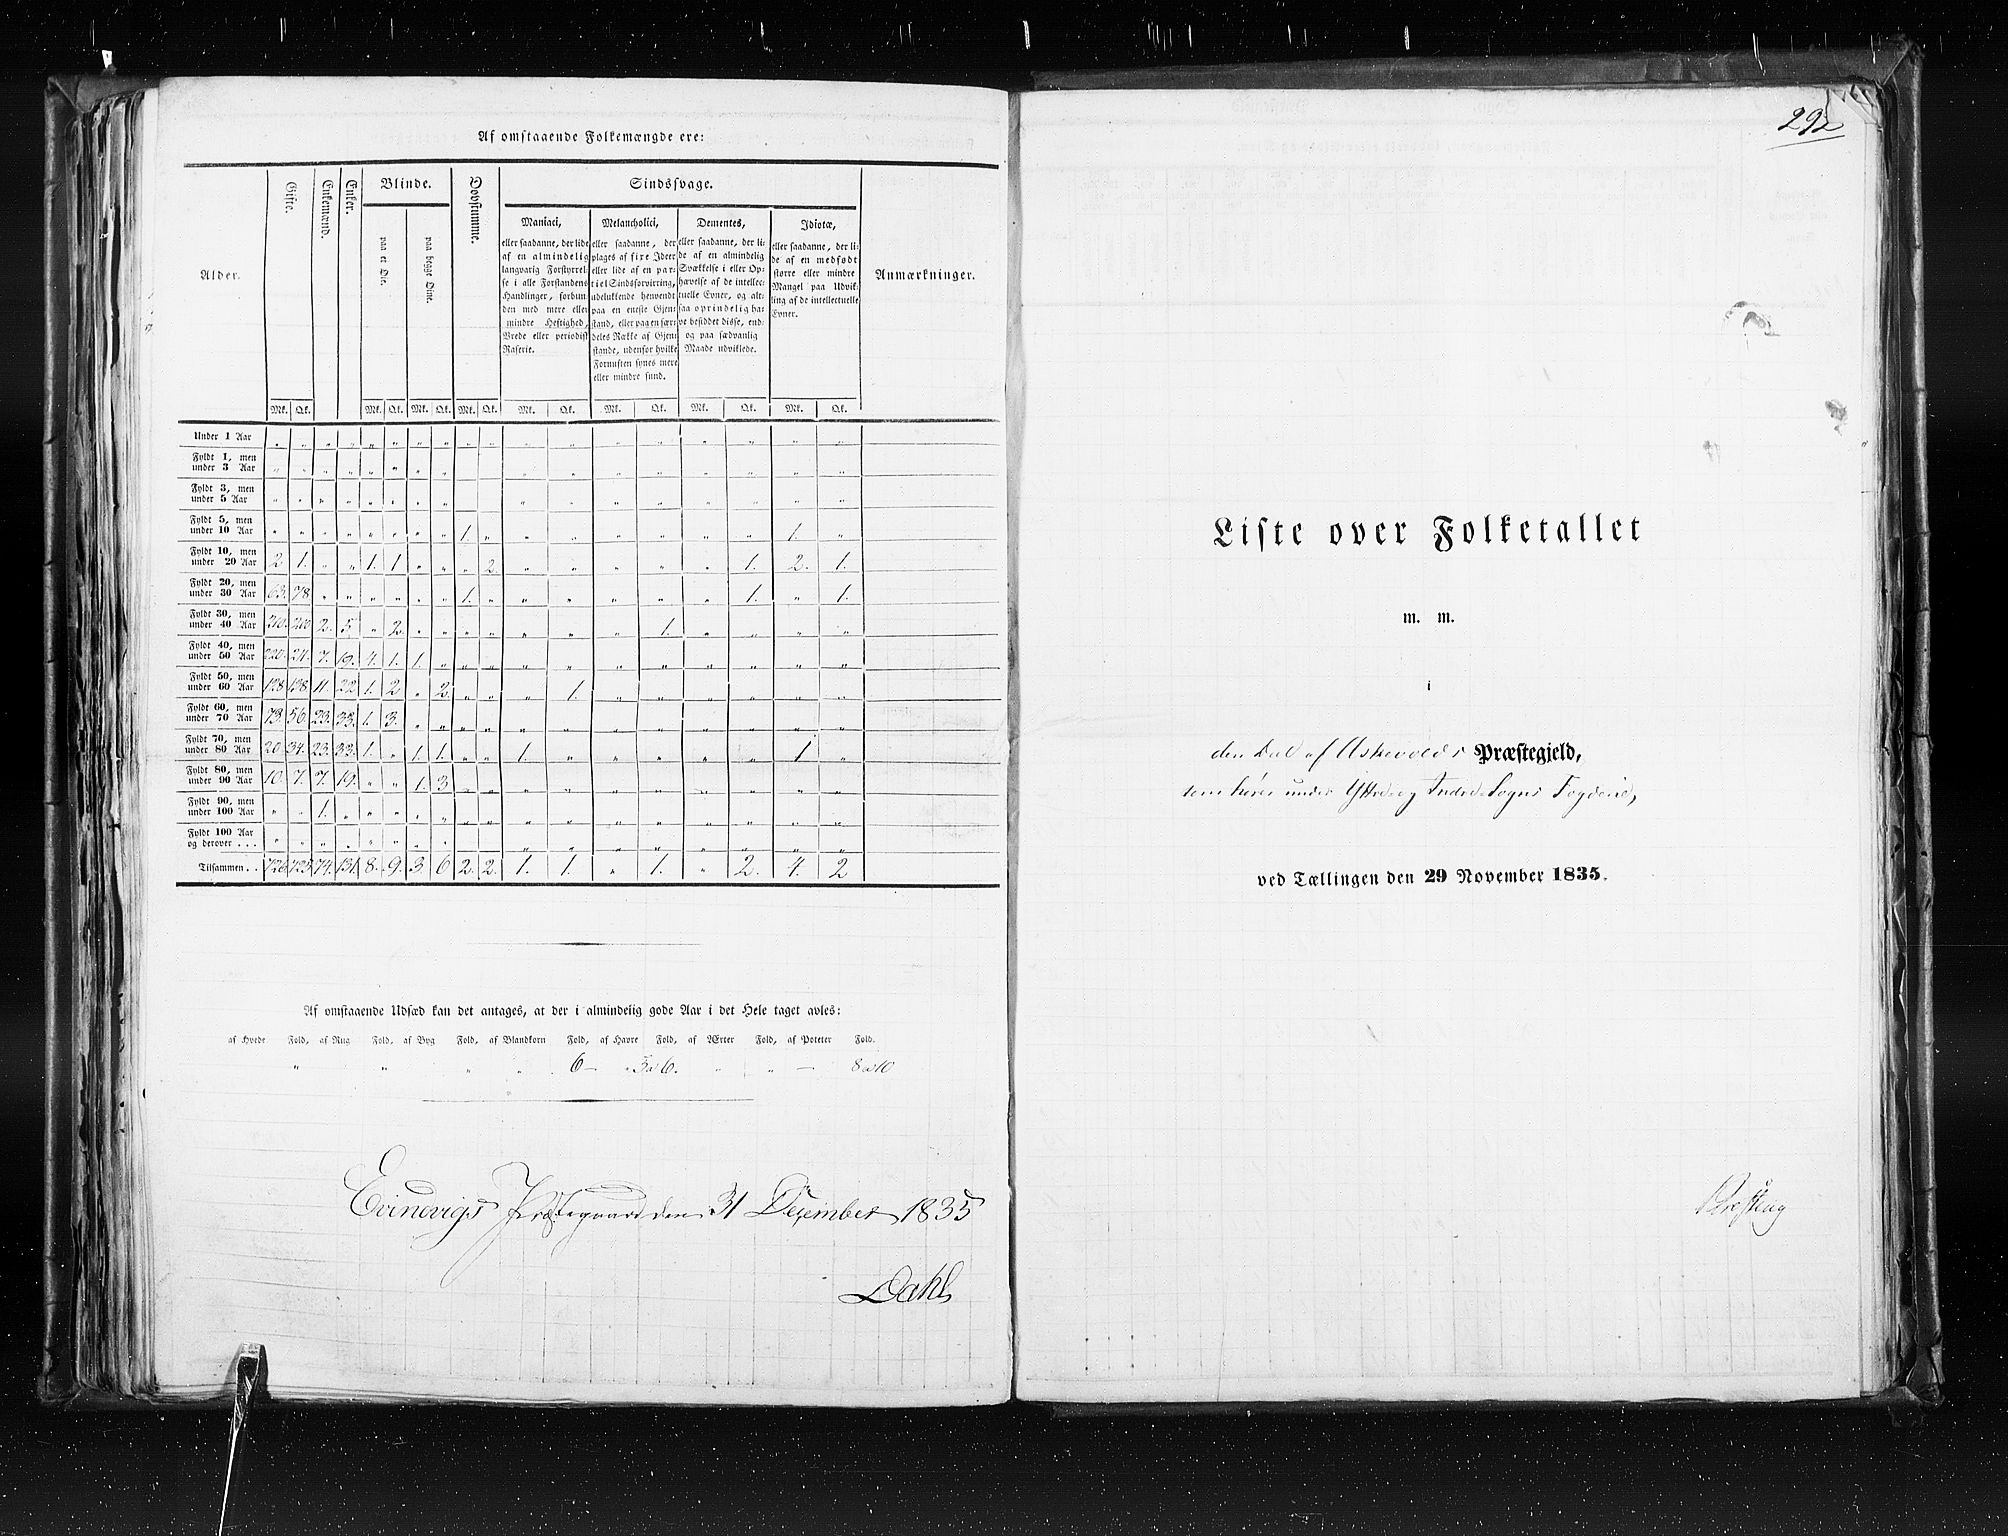 Af omstaaende Folkemængde ere:
Alder. Gifte. Enkemænd. Enker. Blinde. Døvstumme. Sindssvage. Anmærkninger.
paa et Øie. paa begge Øine.
Maniaci,
eller saadanne, der lide
af en almindelig
langvarig Forstyrrel-
se i alle Forstandens
Handlinger, forbun
den med mere eller
mindre Heftighed,
Vrede eller periodisk
Raserie.
Melancholici,
eller saadanne, der
plages af fixe Ideer
eller lide af en par-
tiel Sindsforvirring,
udelukkende henvendt
paa en eneste Gjen-
stand, eller paa en sær-
deles Række af Gjen-
stande, udenfor hvilke
Fornuften synes mere
eller mindre sund.
Dementes,
eller saadanne, der li-
de af en almindelig
Svækkelse i eller Op-
hævelse af de intellec-
tuelle Evner, og alt-
saa oprindelig ha-
ve besiddet disse, end-
og paa sædvanlig
Maade udviklede.
Idiotæ,
eller saadanne, der li-
de af en medfødt
større eller mindre
Mangel paa Udvik-
ling af de intellectuelle
Evner.
Mk. Qk. Mk. Qk. Mk. Qk. Mk. Qk. Mk. Qk. Mk. Qk. Mk. Qk. Mk. Qk.
Under 1 Aar " " " " " " " " " " " " " " " " " "
Fyldt 1, men
under 3 Aar " " " " " " " " " " " " " " " "
Fyldt 3, men
under 5 Aar " " " " " " " " " " " " " " " "
Fyldt 5, men
under 10 Aar " " " " " " " " 1. " " " " " " " 1. "
Fyldt 10, men
under 20 Aar 2 1. " " 1. 1 " " " 2. " " " " " 1. 2. 1.
Fyldt 20, men
under 30 Aar 63. 78 " " " " " " 1. " " " " " " 1. " 1.
Fyldt 30, men
under 40 Aar 210. 200 2. 5 " 2. " " " " " " " 1. " " " "
Fyldt 40, men
under 50 Aar 220. 7. 19. 4. 1. 1. " " " " " " " " " " "
Fyldt 50, men
under 60 Aar 128 128. 11. 22 1. 2 " 2. " " " 1. " " " " " "
Fyldt 60, men
under 70 Aar 73. 56. 23. 33. 1. 3. " " " " " " " " " " " "
Fyldt 70, men
under 80 Aar 20 34. 23. 33. 1. " 1. 1. " " 1. " " " " " 1 "
Fyldt 80, men
under 90 Aar 10. 7. 7. 19. " " 1. 3 " " " " " " " " " "
Fyldt 90, men
under 100 Aar " " 1. " " " " " " " " " " " " " " "
Fyldt 100 Aar
og derover . . . " " " " " " " " " " " " " " " " " "
Tilsammen . . 726. 725 74. 131. 8. 9. 3. 6 2. 2. 1. 1. " 1. " 2. 4. 2
Af omstaaende Udsæd kan det antages, at der i almindelig gode Aar i det Hele taget avles:
af Hvede Fold, af Rug Fold, af Byg Fold, af Blandkorn Fold, af Havre Fold, af Ærter Fold, af Poteter Fold.
" " " " 6 — " 5 a 6. " " — 8 a 10
Evindvigs Præstegaard den 31 December 1835
Dahl
292
Liste over Folketallet
m. m.
i
den Deel af Askevolds Præstegjeld,
som hører under Ytre og Indre Sogns Fogderie,
ved Tællingen den 29 November 1835.